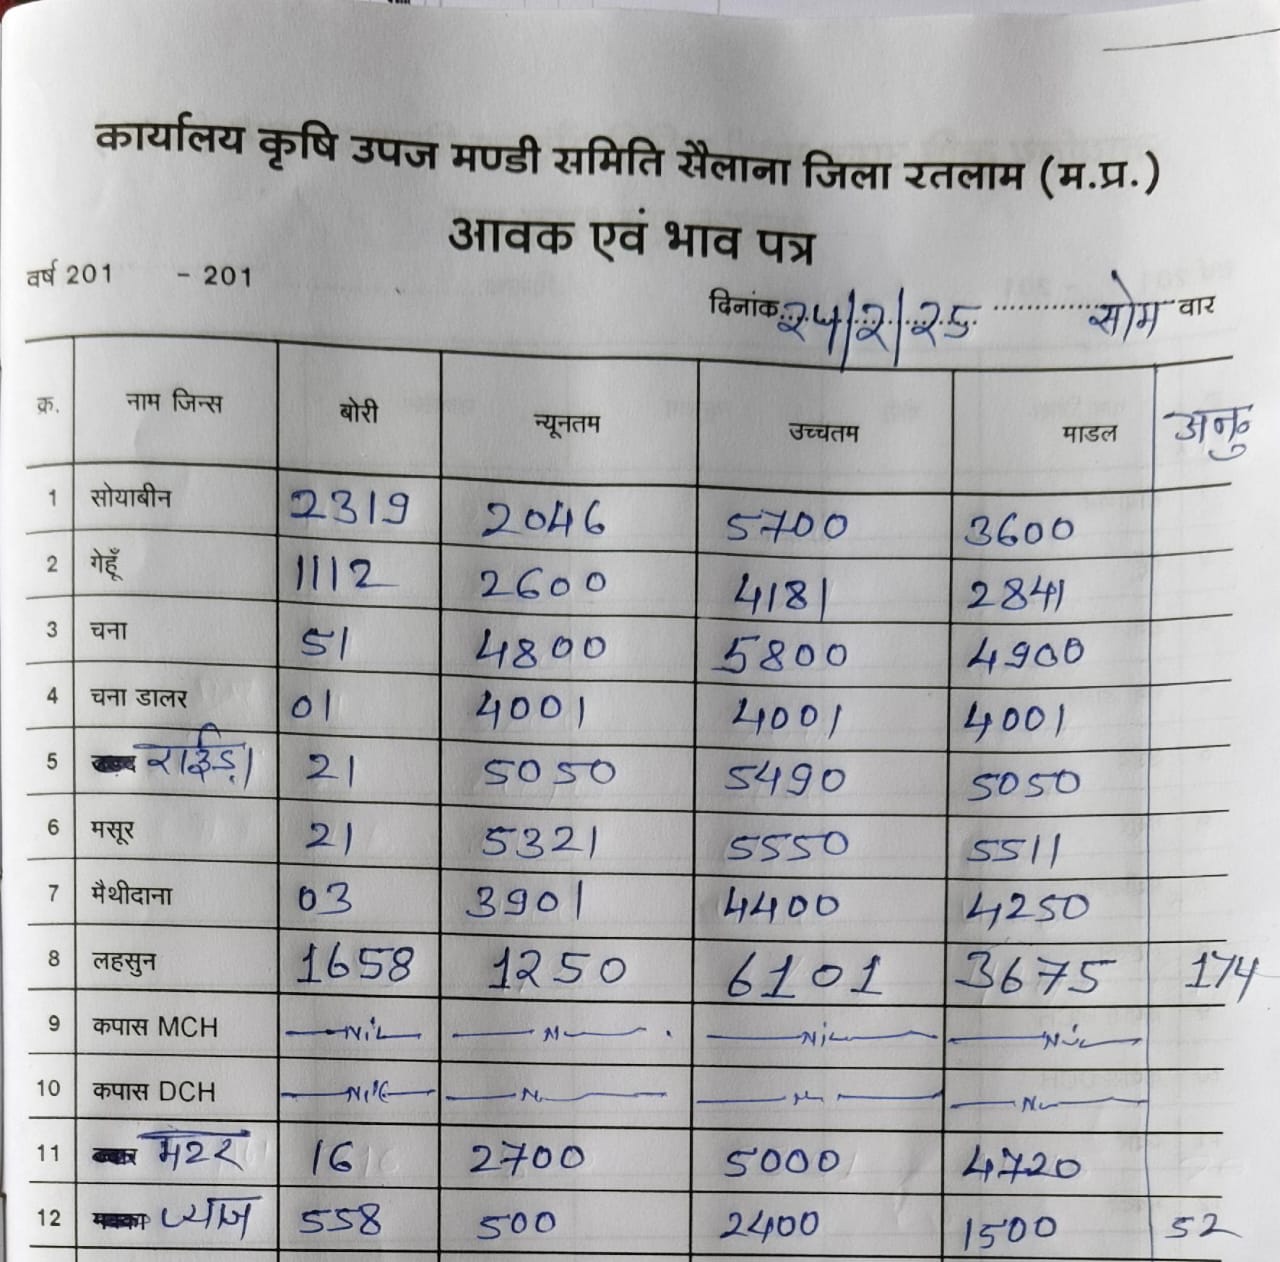 कार्यालय कृषि उपज मण्डी समिति सैलाना जिला रतलाम (म.प्र.)
आवक एवं भाव पत्र
वर्ष 201 - 201
दिनांक २५/२/२५ सोम वार
क्र. नाम जिन्स बोरी न्यूनतम उच्चतम माडल
1 सोयाबीन 2319 2046 5700 3600
2 गेहूँ 1112 2600 4181 2841
3 चना 51 4800 5800 4900
4 चना डालर 01 4001 4001 4001
5 21 5050 5490 5050
6 मसूर 21 5321 5550 5511
7 मैथीदाना 03 3901 4400 4250
8 लहसुन 1658 1250 6101 3675 174
9 कपास MCH Nil N Nil Nil
10 कपास DCH Nil N N N
11 मटर 16 2700 5000 4720
12 प्याज 558 500 2400 1500 52